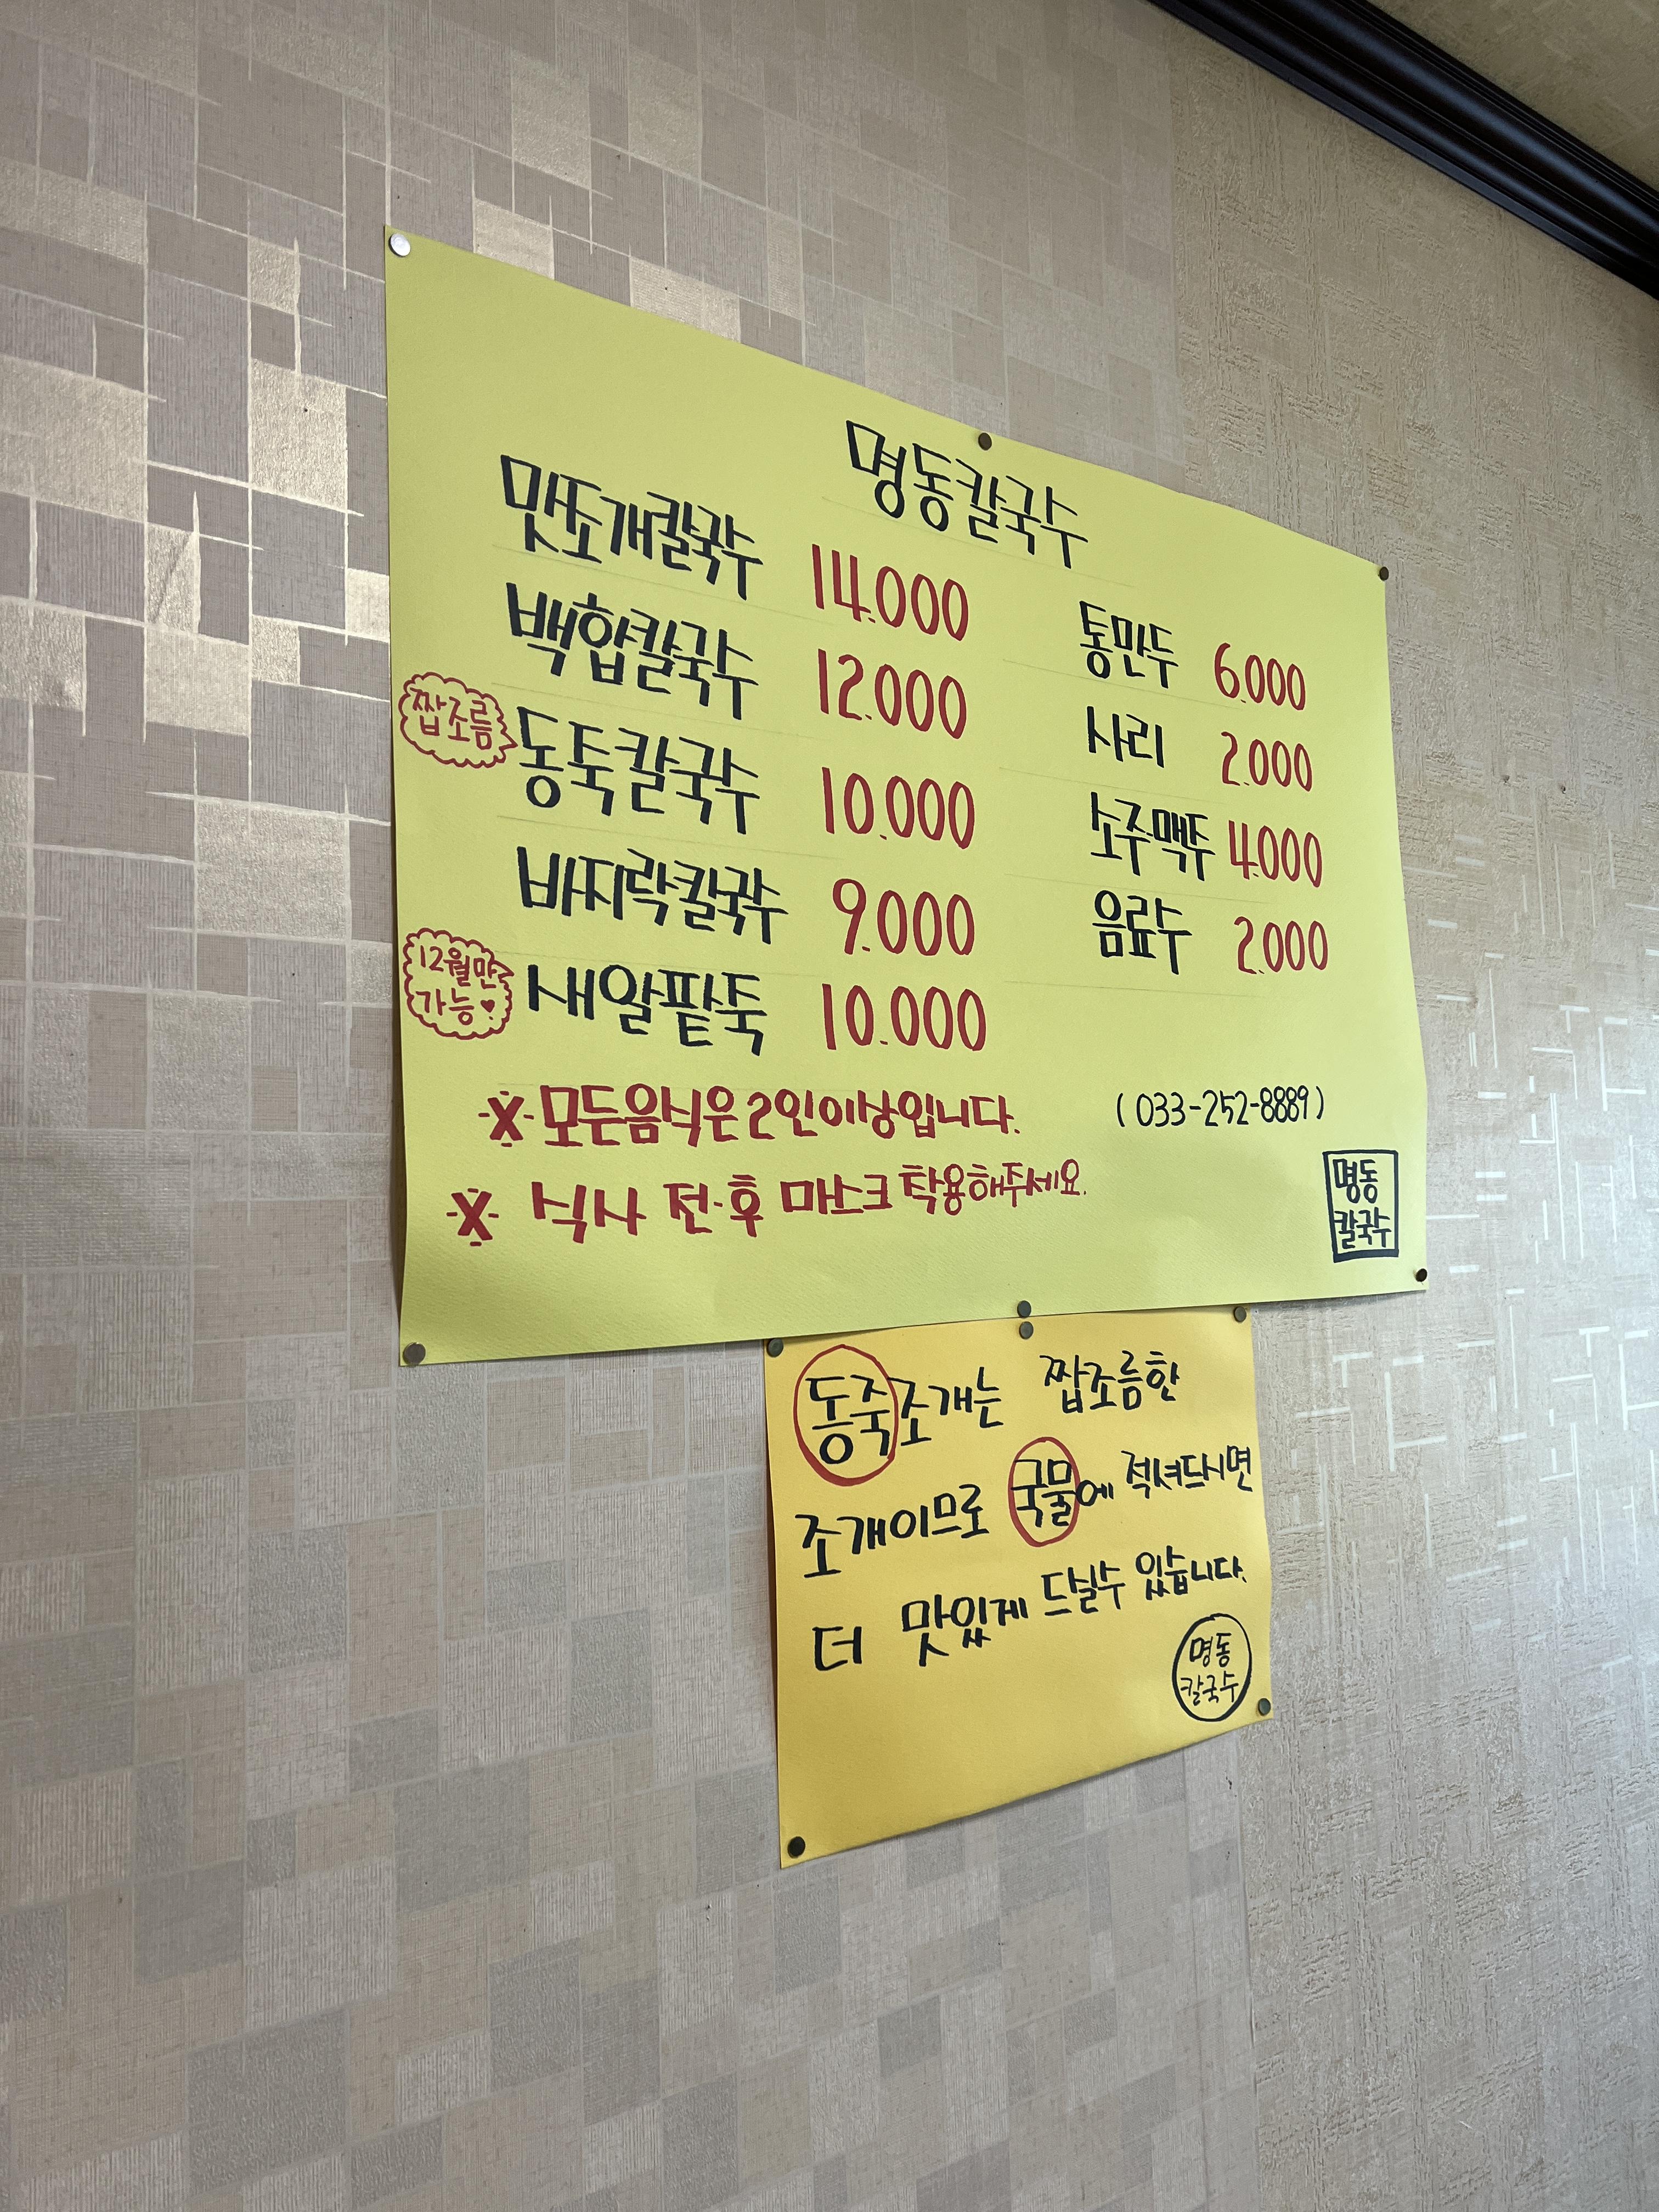 명동칼국수
맛조개칼국수 14.000
백합칼국수 12.000
짭조름
동죽칼국수 10.000
바지락칼국수 9.000
12월만
가능♥
새알팥죽 10.000
통만두 6.000
사리 2.000
소주·맥주 4.000
음료수 2.000
※ 모든음식은 2인이상입니다.
(033-252-8889)
※ 식사 전·후 마스크 착용해주세요.
명동
칼국수
동죽조개는 짭조름한
조개이므로 국물에 적셔드시면
더 맛있게 드실수 있습니다.
명동
칼국수